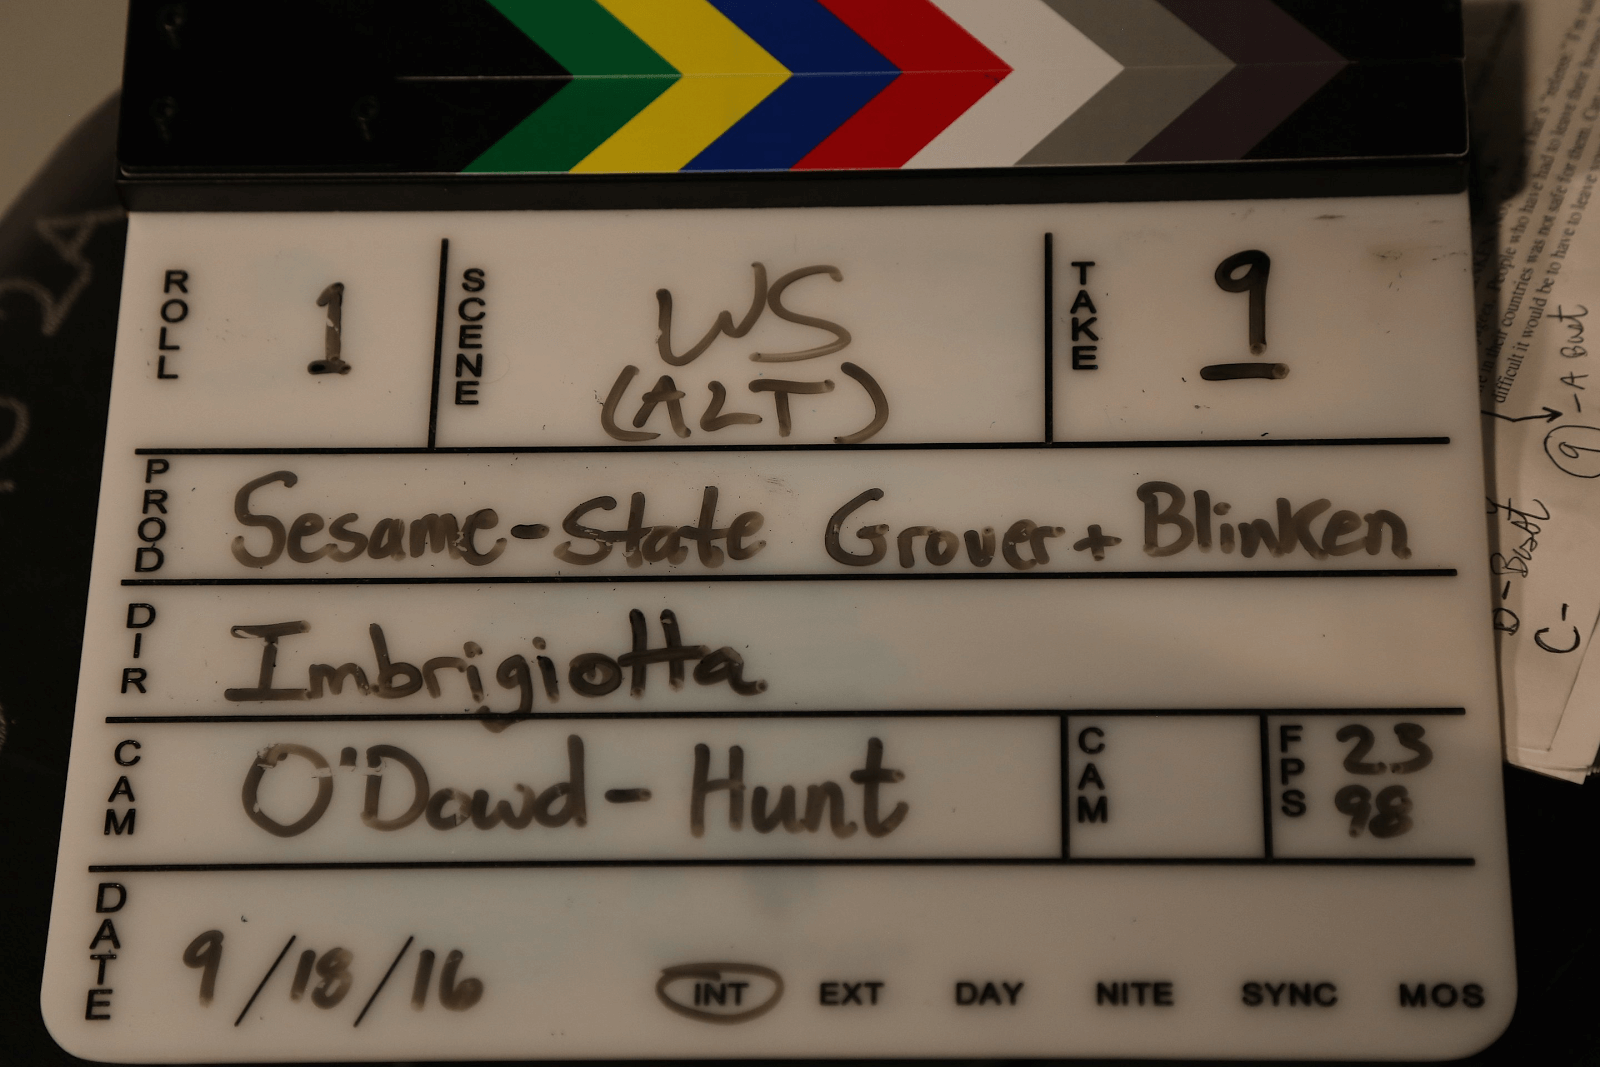 ROLL 1 SCENE WS TAKE 9
(ALT)
PROD Sesame-State Grover + Blinken
DIR Imbrigiotta
CAM O'Dowd-Hunt CAM FPS 23
98
DATE 9/18/16 INT EXT DAY NITE SYNC MOS
People who have had to leave their
their countries was not safe for them.
difficult it would be to have to leave
9 - A But
C-